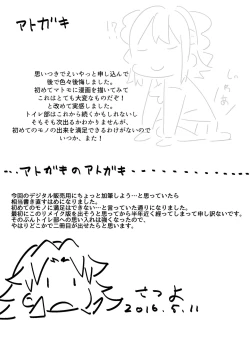 アトガキ
思いつきでえいやっと申し込んで
後で色々後悔しました。
初めてマトモに漫画を描いてみて
これはとても大変なものだぞ！
と改めて実感しました。
トイレ部はこれから続くかもしれないし
そもそも次出るかわかりませんが、
初めてのモノの出来を満足できるわけがないので
いつか、また！
アトガキのアトガキ
今回のデジタル販売用にちょっと加筆しよう…と思っていたら
相当書き直すはめになりました。
初めてのモノに満足はできない…と言っていた通りになりました。
最初にこのリメイク版を出そうと思ってから半年近く経ってしまって申し訳ないです。
そのぶんトイレ部への思い入れは強くなったので、
やはりどこかで二冊目が出せたらと思います。
さつよ
2016.5.11